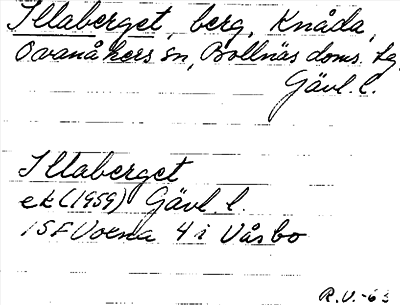 Iltaberget, berg, Knåda,
Ovanåkers sn, Bollnäs doms. tg,
Gävl. l.
Iltaberget
ek (1959) Gävl. l.
15F Voxna 4 i Våsbo
R.V.-63